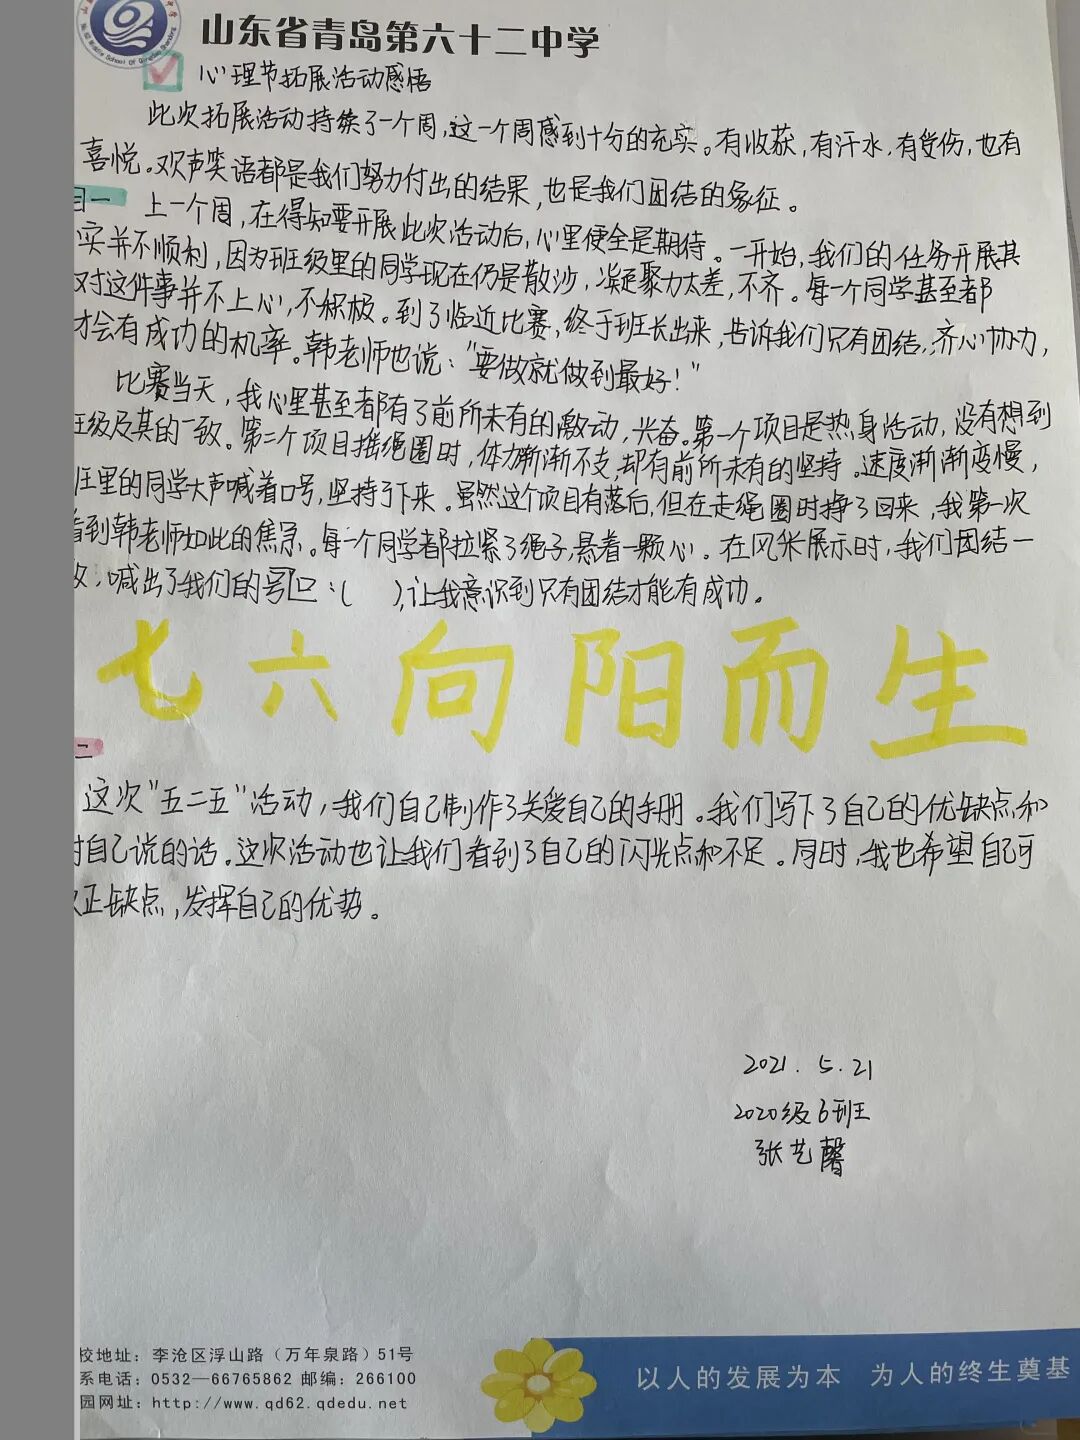 山东省青岛第六十二中学
心理节拓展活动感悟
此次拓展活动持续了一个周,这一个周感到十分的充实。有收获,有汗水,有受伤,也有
喜悦。欢声笑语都是我们努力付出的结果,也是我们团结的象征。
目一 上一个周,在得知要开展此次活动后,心里便全是期待。一开始,我们的任务开展其
实并不顺利,因为班级里的同学现在仍是散沙,凝聚力太差,不齐。每一个同学甚至都
对这件事并不上心,不积极。到了临近比赛,终于班长出来,告诉我们只有团结,齐心协力,
才会有成功的机率。韩老师也说:"要做就做到最好!"
比赛当天,我心里甚至都有了前所未有的激动,兴奋。第一个项目是热身活动,没有想到
班级及其的一致。第二个项目摇绳圈时,体力渐渐不支,却有前所未有的坚持。速度渐渐变慢,
班里的同学大声喊着口号,坚持了下来。虽然这个项目有落后,但在走绳圈时挣了回来,我第一次
看到韩老师如此的焦急。每一个同学都拉紧了绳子,悬着一颗心。在风采展示时,我们团结一
致,喊出了我们的号口:( ),让我意识到只有团结才能有成功。
七六向阳而生
二
这次"五二五"活动,我们自己制作了关爱自己的手册。我们写下了自己的优缺点和
对自己说的话。这次活动也让我们看到了自己的闪光点和不足。同时,我也希望自己可
改正缺点,发挥自己的优势。
2021.5.21
2020级6班
张艺馨
校地址:李沧区浮山路(万年泉路)51号
系电话:0532—66765862 邮编:266100
园网址:http://www.qd62.qdedu.net
以人的发展为本 为人的终生奠基